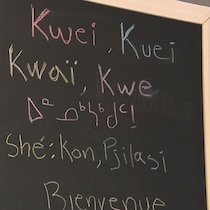 Kwei, Kuei
Kwaï, Kwe
Shé:Kon, Pjilasi
Bienvenue